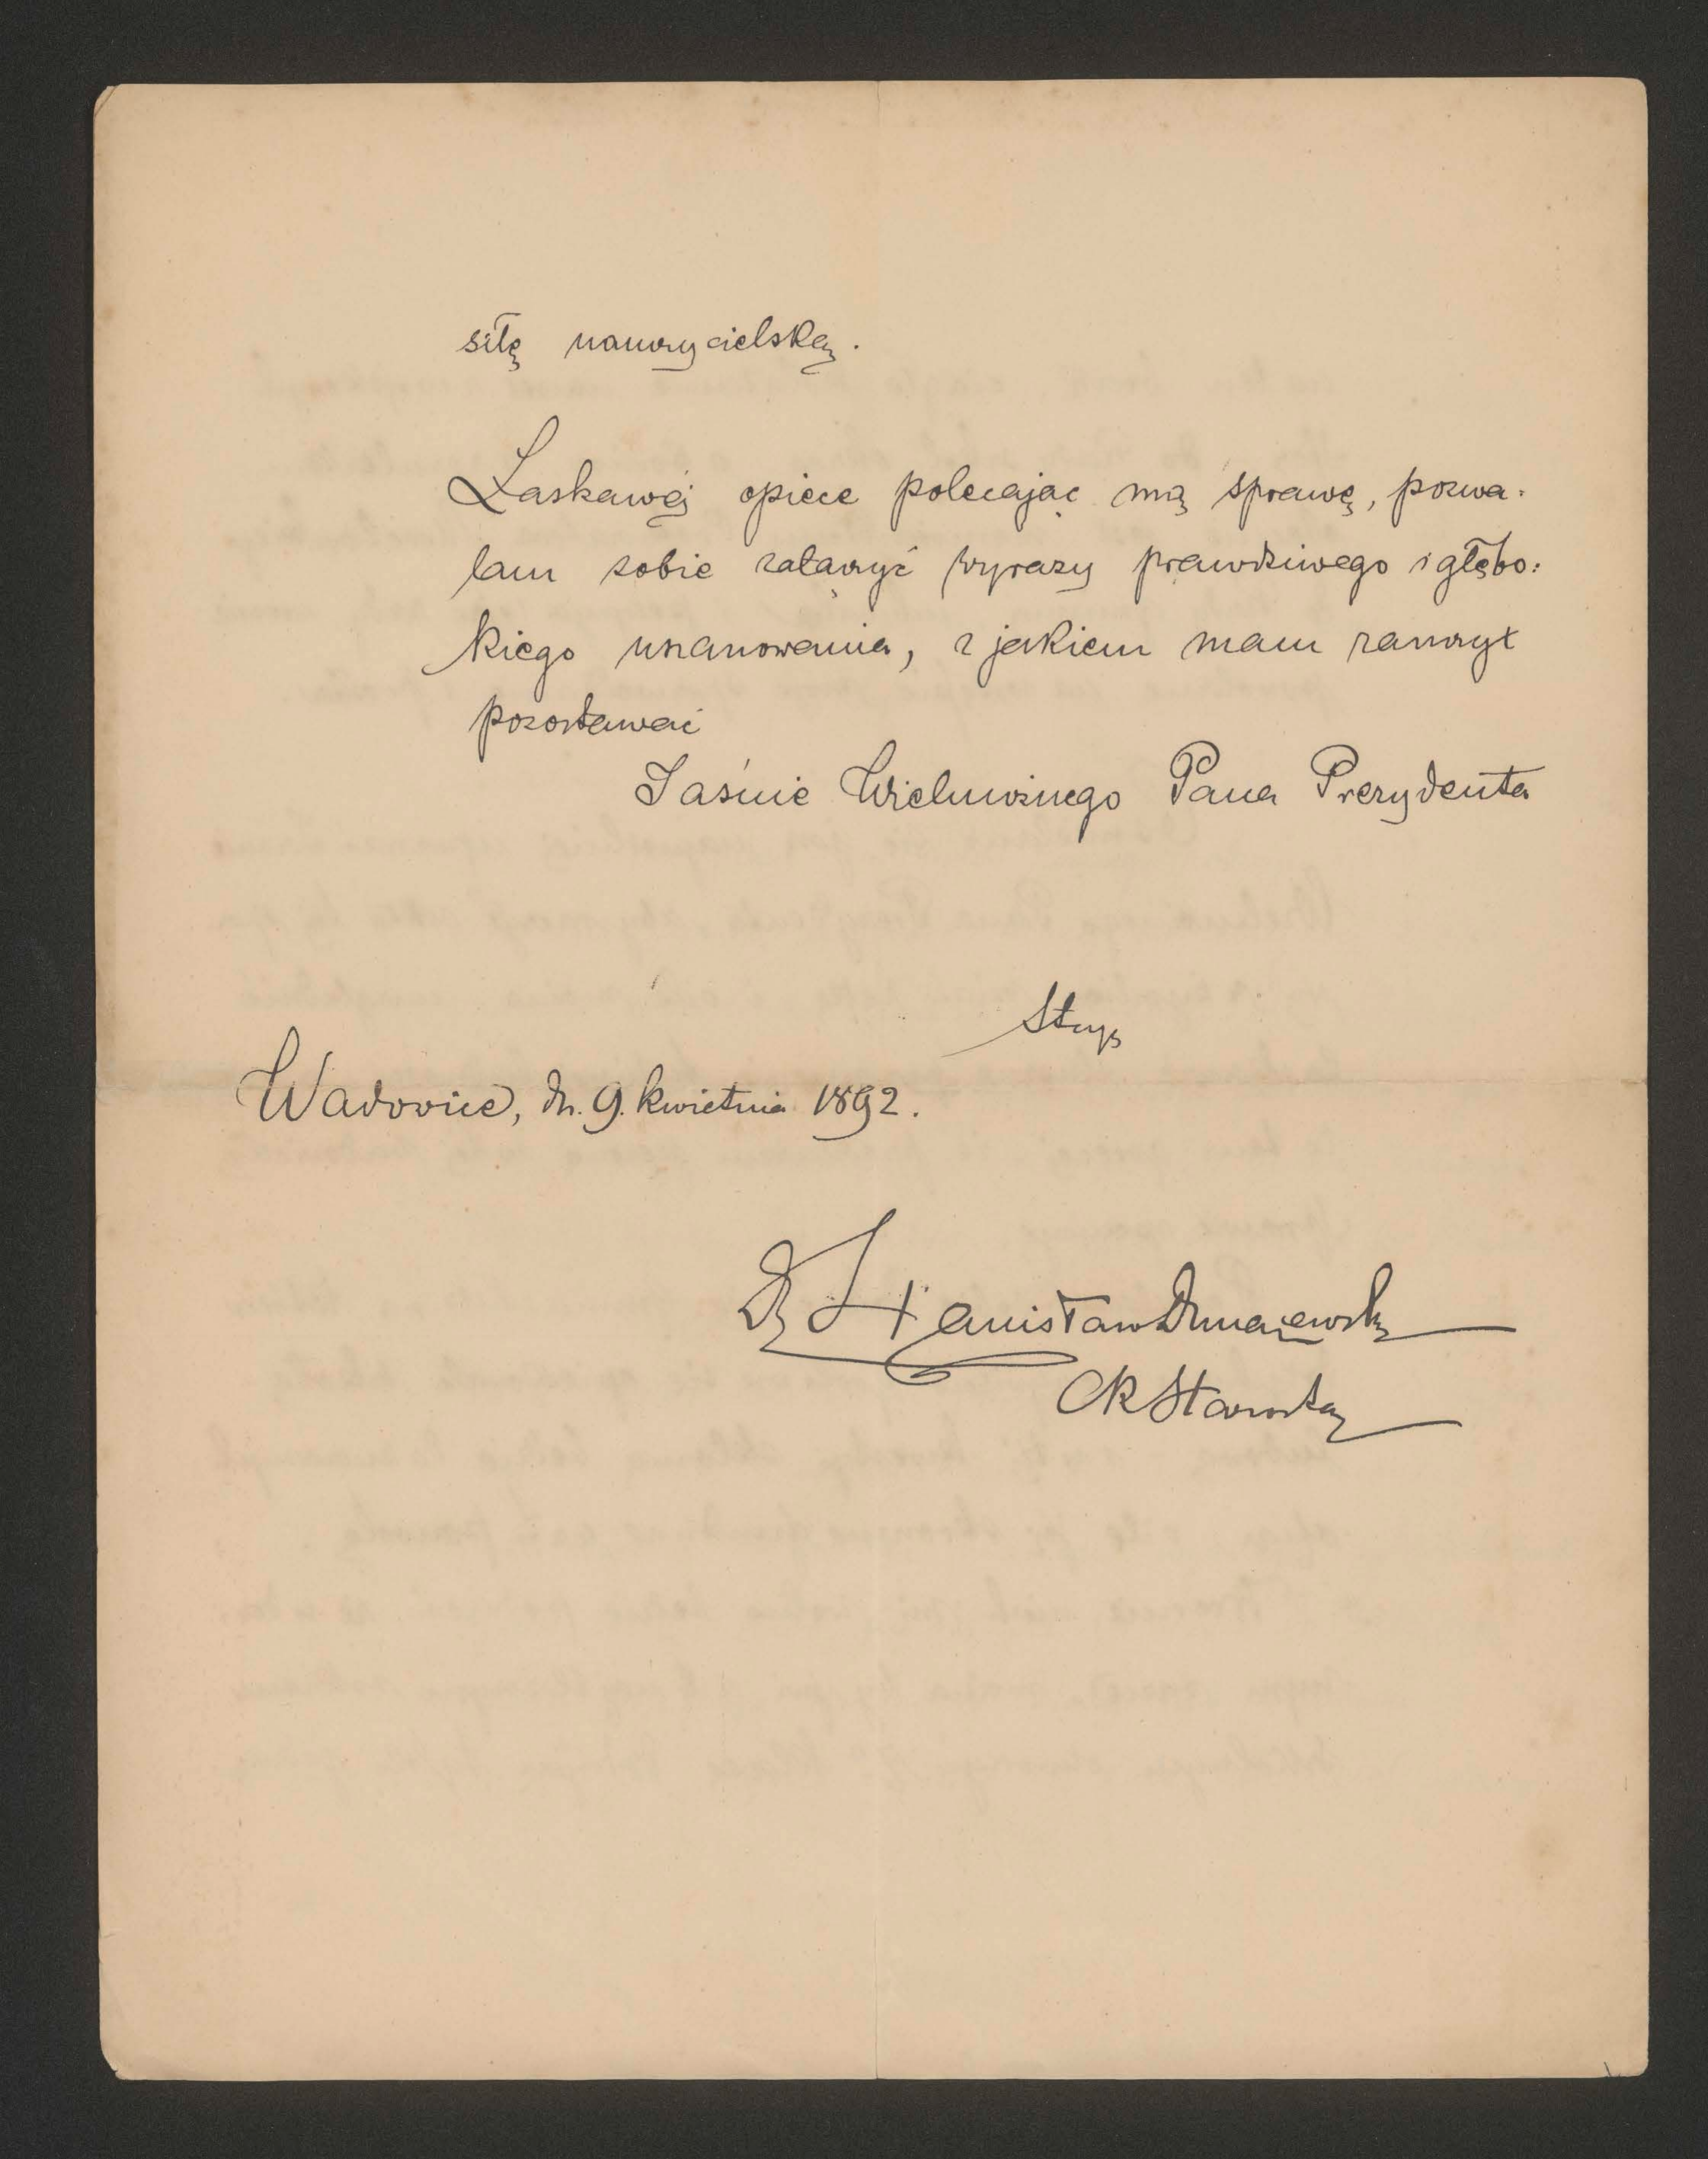 siłę nauczycielską.
Łaskawéj opiece polecając mą sprawę, pozwa:
lam sobie załączyć wyrazy prawdziwego i głębo:
kiego uszanowania, z jakiem mam zaszczyt
pozostawać
Jaśnie Wielmożnego Pana Prezydenta
sługą
Wadowice, dn. 9. kwietnia 1892.
Dr Stanisław Dunajewski
CK Starosta